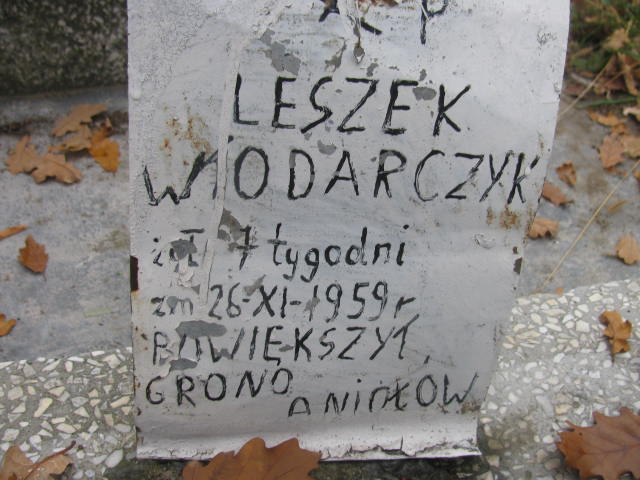 Ś P
LESZEK
WŁODARCZYK
żył 7 tygodni
zm 26-XI-1959 r,
POWIĘKSZYŁ,
GRONO ANIOŁÓW